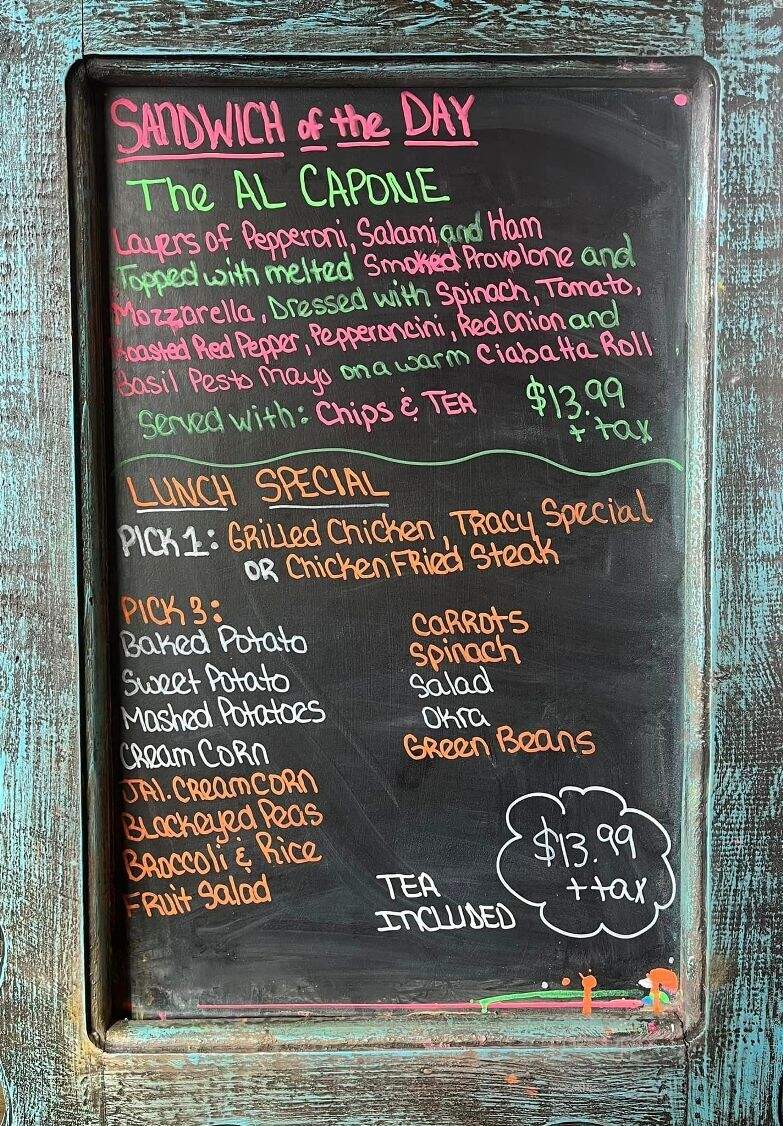 SANDWICH of the DAY
The AL CAPONE
Layers of Pepperoni, Salami and Ham
Topped with melted Smoked Provolone and
Mozzarella, Dressed with Spinach, Tomato,
Roasted Red Pepper, Pepperoncini, Red Onion and
Basil Pesto Mayo on a warm Ciabatta Roll
Served with: Chips & TEA $13.99
+ tax
LUNCH SPECIAL
PICK 1: Grilled Chicken, Tracy Special
OR Chicken Fried Steak
PICK 3:
Baked Potato
Sweet Potato
Mashed Potatoes
Cream Corn
JAl. Cream Corn
Blackeyed Peas
Broccoli & Rice
Fruit Salad
Carrots
Spinach
Salad
Okra
Green Beans
TEA
INCLUDED
$13.99
+ tax